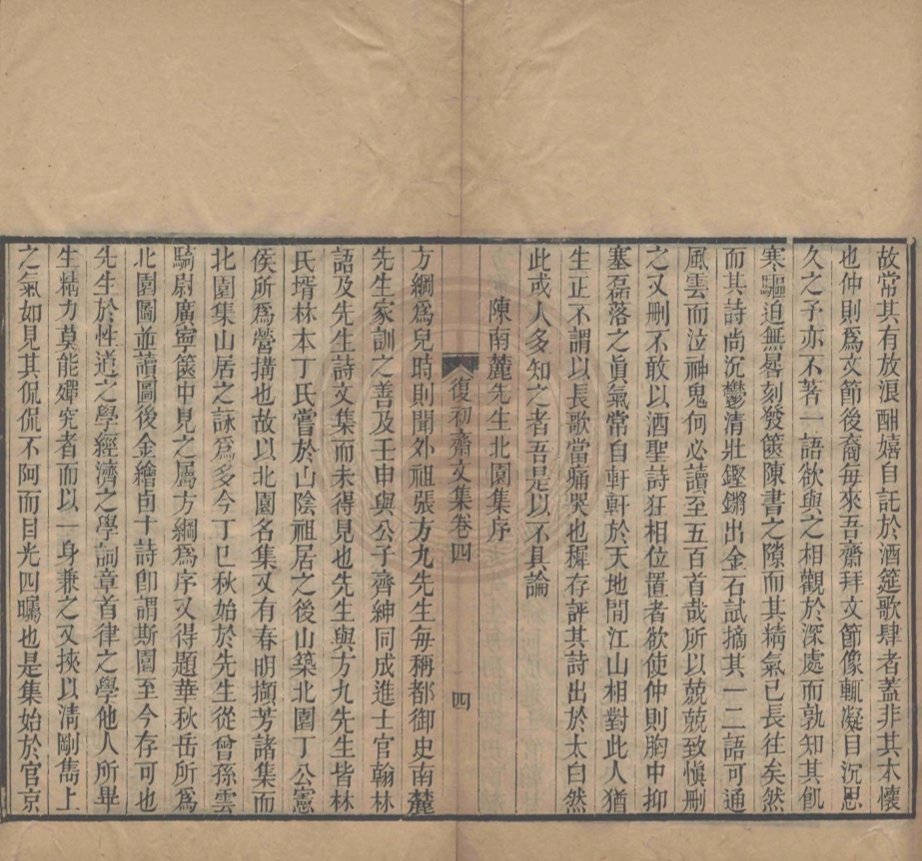 故常其有放浪酣嬉自託於酒筵歌肆者蓋非其本懷
也仲則爲文節後裔每來吾齋拜文節像輒凝目沉思
久之予亦不著一語欲與之相觀於深處而孰知其飢
寒驅迫無晷刻發篋陳書之隙而其精氣已長往矣然
而其詩尚沉鬱清壯鏗鏘出金石試摘其一二語可通
風雲而泣神鬼何必讀至五百首哉所以兢兢致愼刪
之又刪不敢以酒聖詩狂相位置者欲使仲則胸中抑
塞磊落之眞氣常自軒軒於天地閒江山相對此人猶
生正不謂以長歌當痛哭也穉存評其詩出於太白然
此或人多知之者吾是以不具論
陳南麓先生北園集序
復初齋文集卷四
四
方綱爲兒時則聞外祖張方九先生每稱都御史南麓
先生家訓之善及壬申與公子齊紳同成進士官翰林
語及先生詩文集而未得見也先生與方九先生皆林
氏壻林本丁氏嘗於山陰祖居之後山築北園丁公憲
侯所爲營搆也故以北園名集又有春明擷芳諸集而
北園集山居之詠爲多今丁巳秋始於先生從曾孫雲
騎尉廣寧篋中見之屬方綱爲序又得題華秋岳所爲
北園圖並讀圖後金繪卣十詩卽謂斯園至今存可也
先生於性道之學經濟之學詞章首律之學他人所畢
生精力莫能殫究者而以一身兼之又挾以清剛雋上
之氣如見其侃侃不阿而目光四矚也是集始於官京